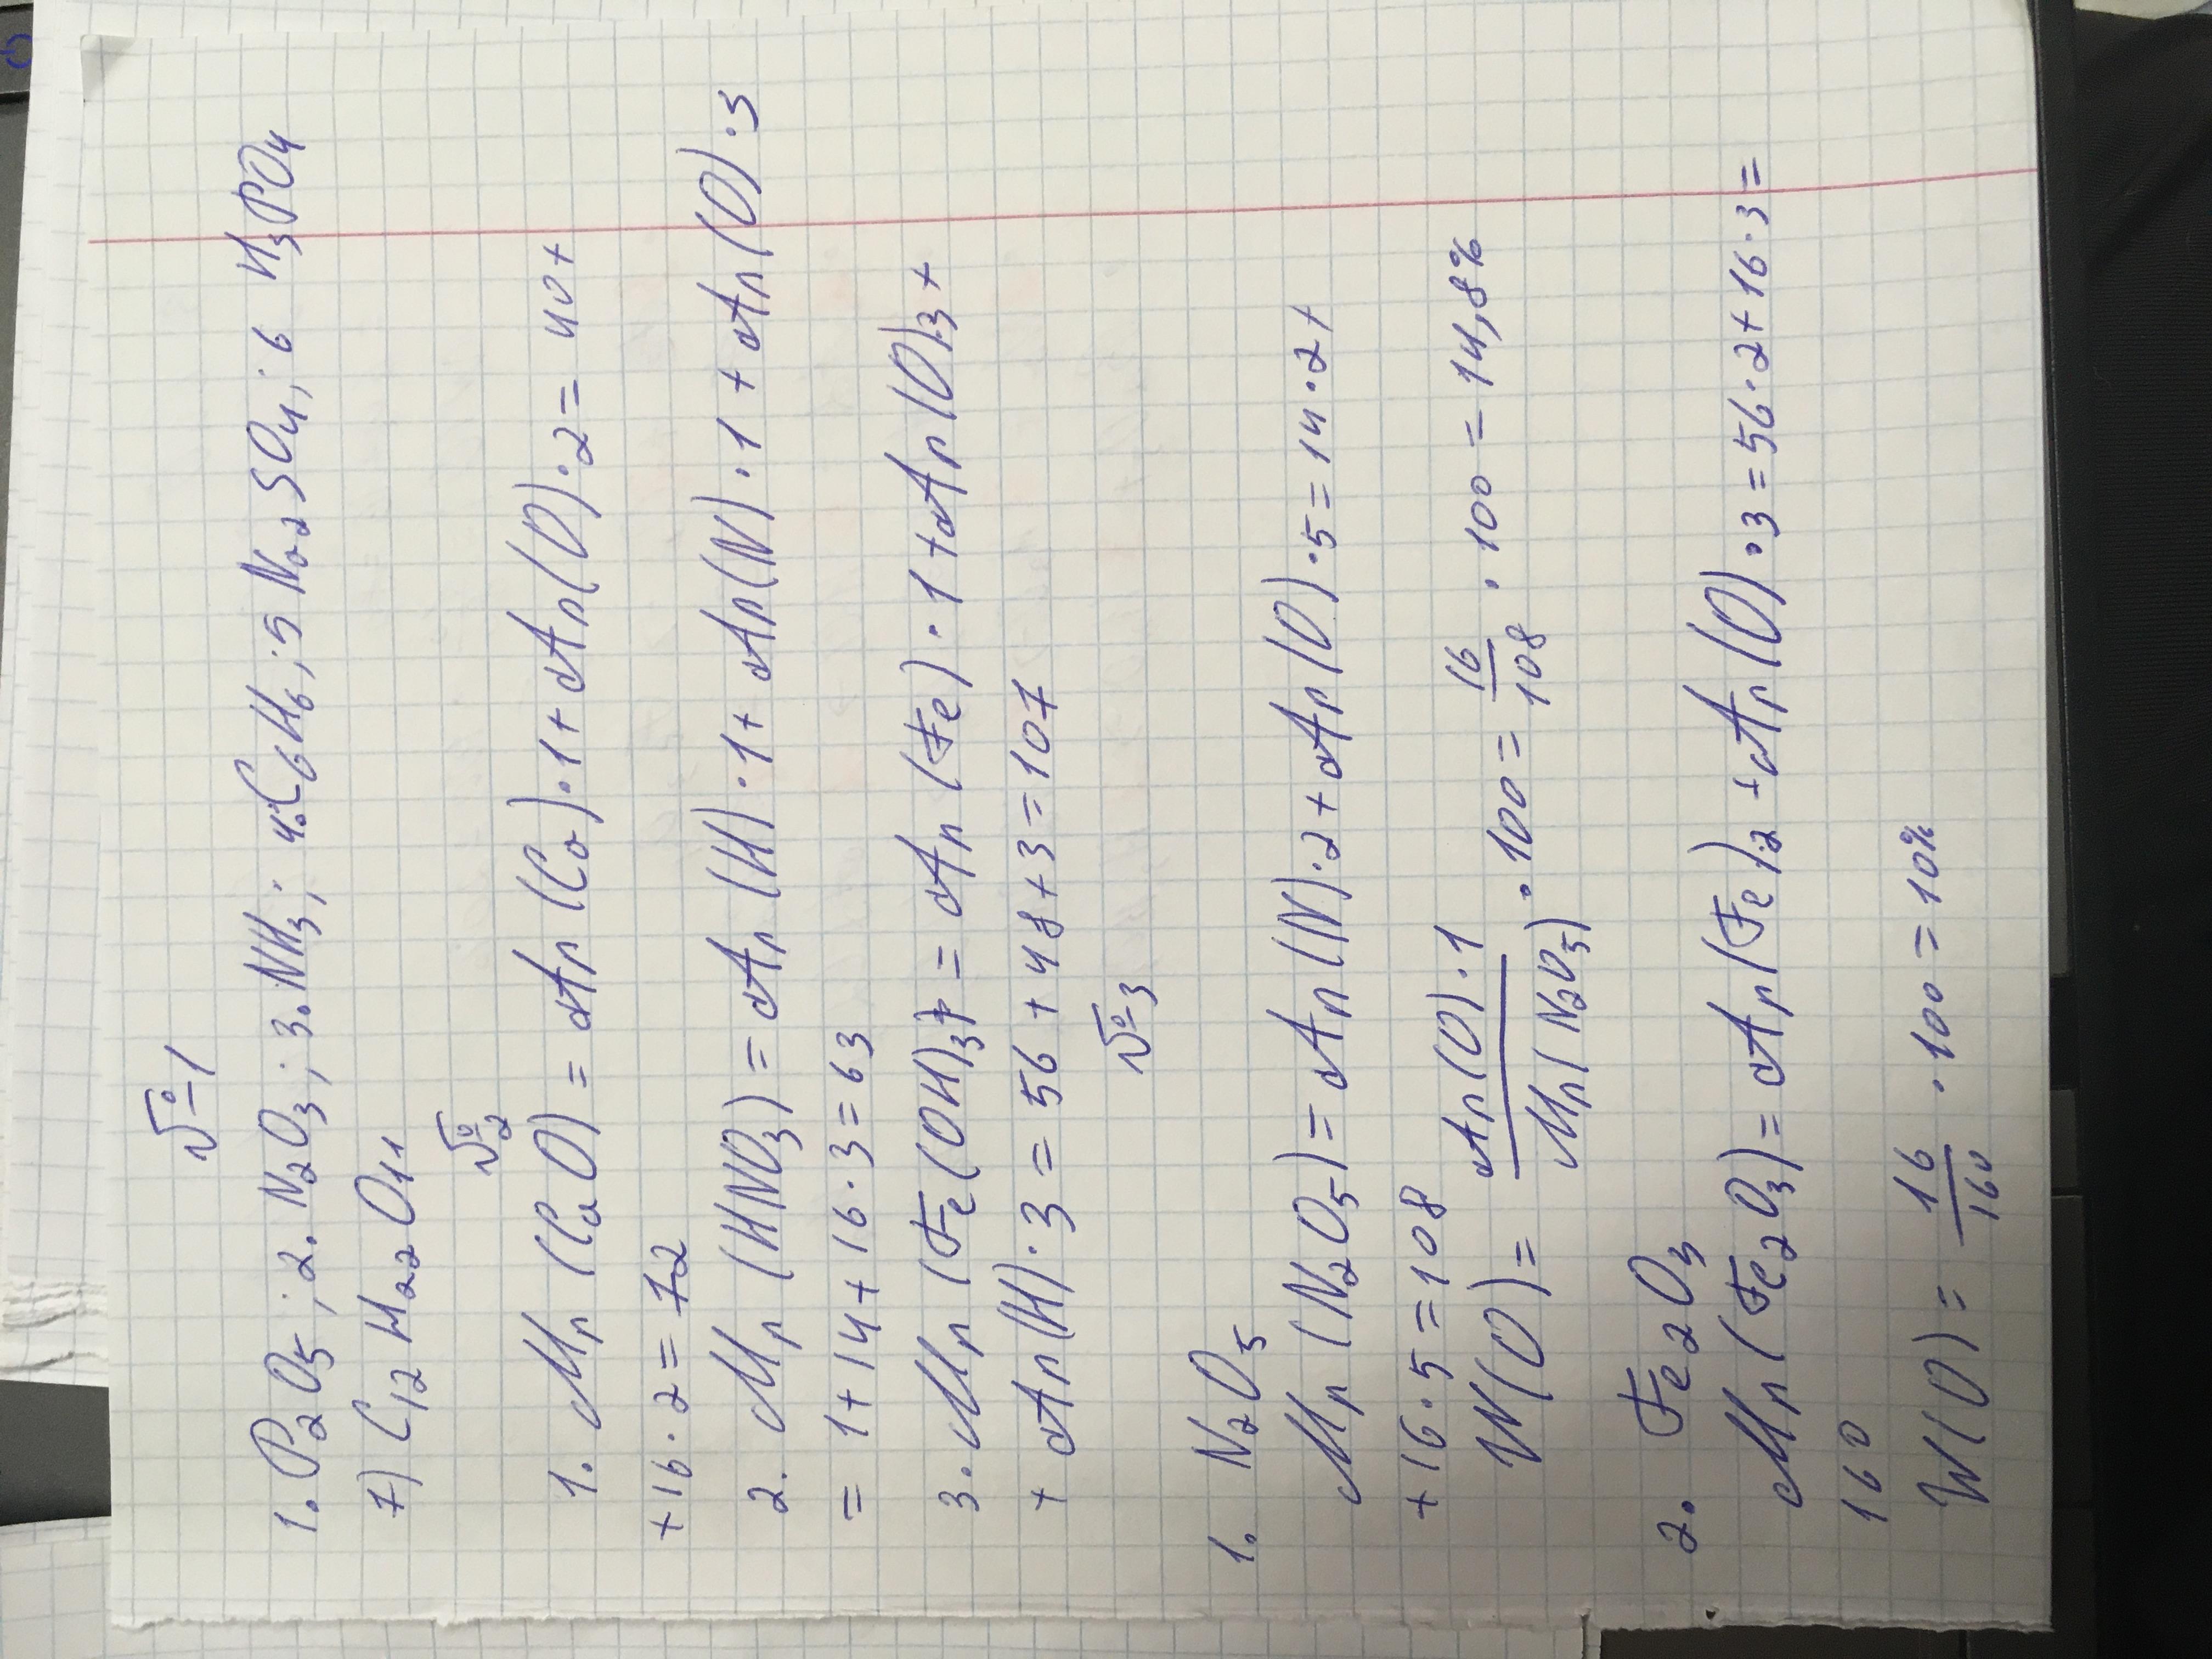 №1
1. P₂O₅; 2. N₂O₃; 3. NH₃; 4. C₆H₆; 5 Na₂SO₄; 6 H₃PO₄
7) C₁₂H₂₂O₁₁
№2
1. Mr (CaO) = Ar (Ca)·1 + Ar(O)·2 = 40+
+16·2 = 72
2. Mr (HNO₃) = Ar (H)·1 + Ar(N)·1 + Ar(O)·3
= 1+14+16·3 = 63
3. Mr (Fe(OH)₃) = Ar (Fe)·1 + Ar (O)·3+
+ Ar(H)·3 = 56+48+3 = 107
№3
1. N₂O₅
Mr (N₂O₅) = Ar (N)·2 + Ar (O)·5 = 14·2+
+16·5 = 108
W(O) = Ar(O)·1 / Mr(N₂O₅) ·100 = 16/108 ·100 = 14,8%
2. Fe₂O₃
Mr (Fe₂O₃) = Ar (Fe)₂ + Ar (O)·3 = 56·2+16·3 =
160
W(O) = 16/160 ·100 = 10%